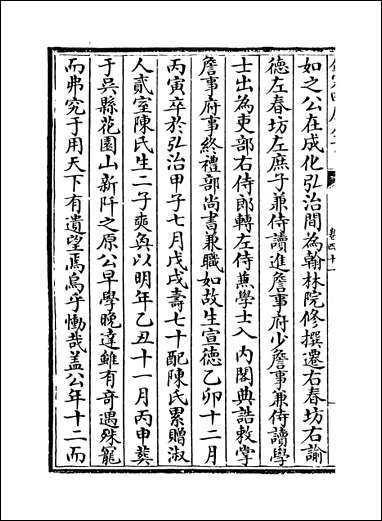 如之公在成化弘治間為翰林院修撰遷右春坊右諭
德左春坊左庶子兼侍讀進詹事府少詹事兼侍讀學
士出為吏部右侍郎轉左侍兼學士入 内閣典誥敕掌
詹事府事終禮部尚書兼職如故生宣德乙卯十二月
丙寅卒於弘治甲子七月戊戌壽七十配陳氏累贈淑
人貳室陳氏生二子奭奐以明年乙丑十一月丙申葬
于吳縣花園山新阡之原公早學晚達雖有奇遇殊寵
而弗究于用天下有遺望焉烏乎慟哉盖公年十二而